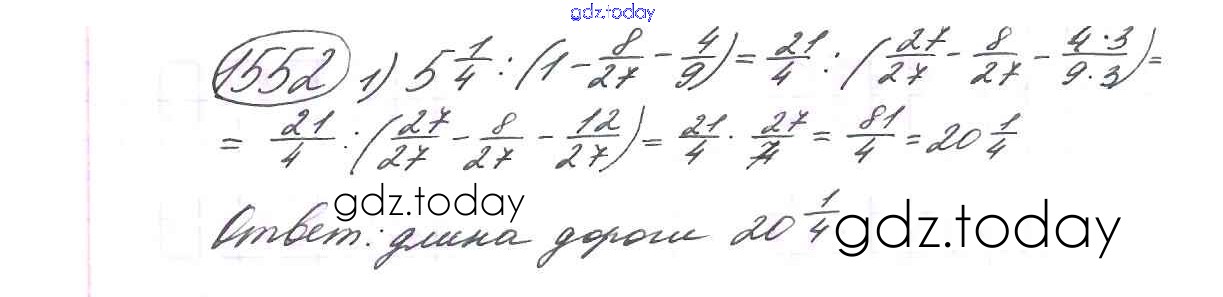 gdz.today
1552 1) 5 1/4 : (1 - 8/27 - 4/9) = 21/4 : (27/27 - 8/27 - 4·3/9·3) =
= 21/4 : (27/27 - 8/27 - 12/27) = 21/4 · 27/7 = 81/4 = 20 1/4
gdz.today
Ответ: длина дороги 20 1/4
gdz.today